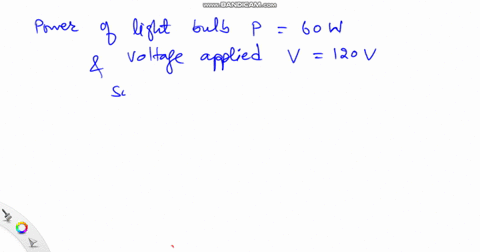 www.BANDICAM.com
Power of light bulb P = 60 W
& voltage applied V = 120 V